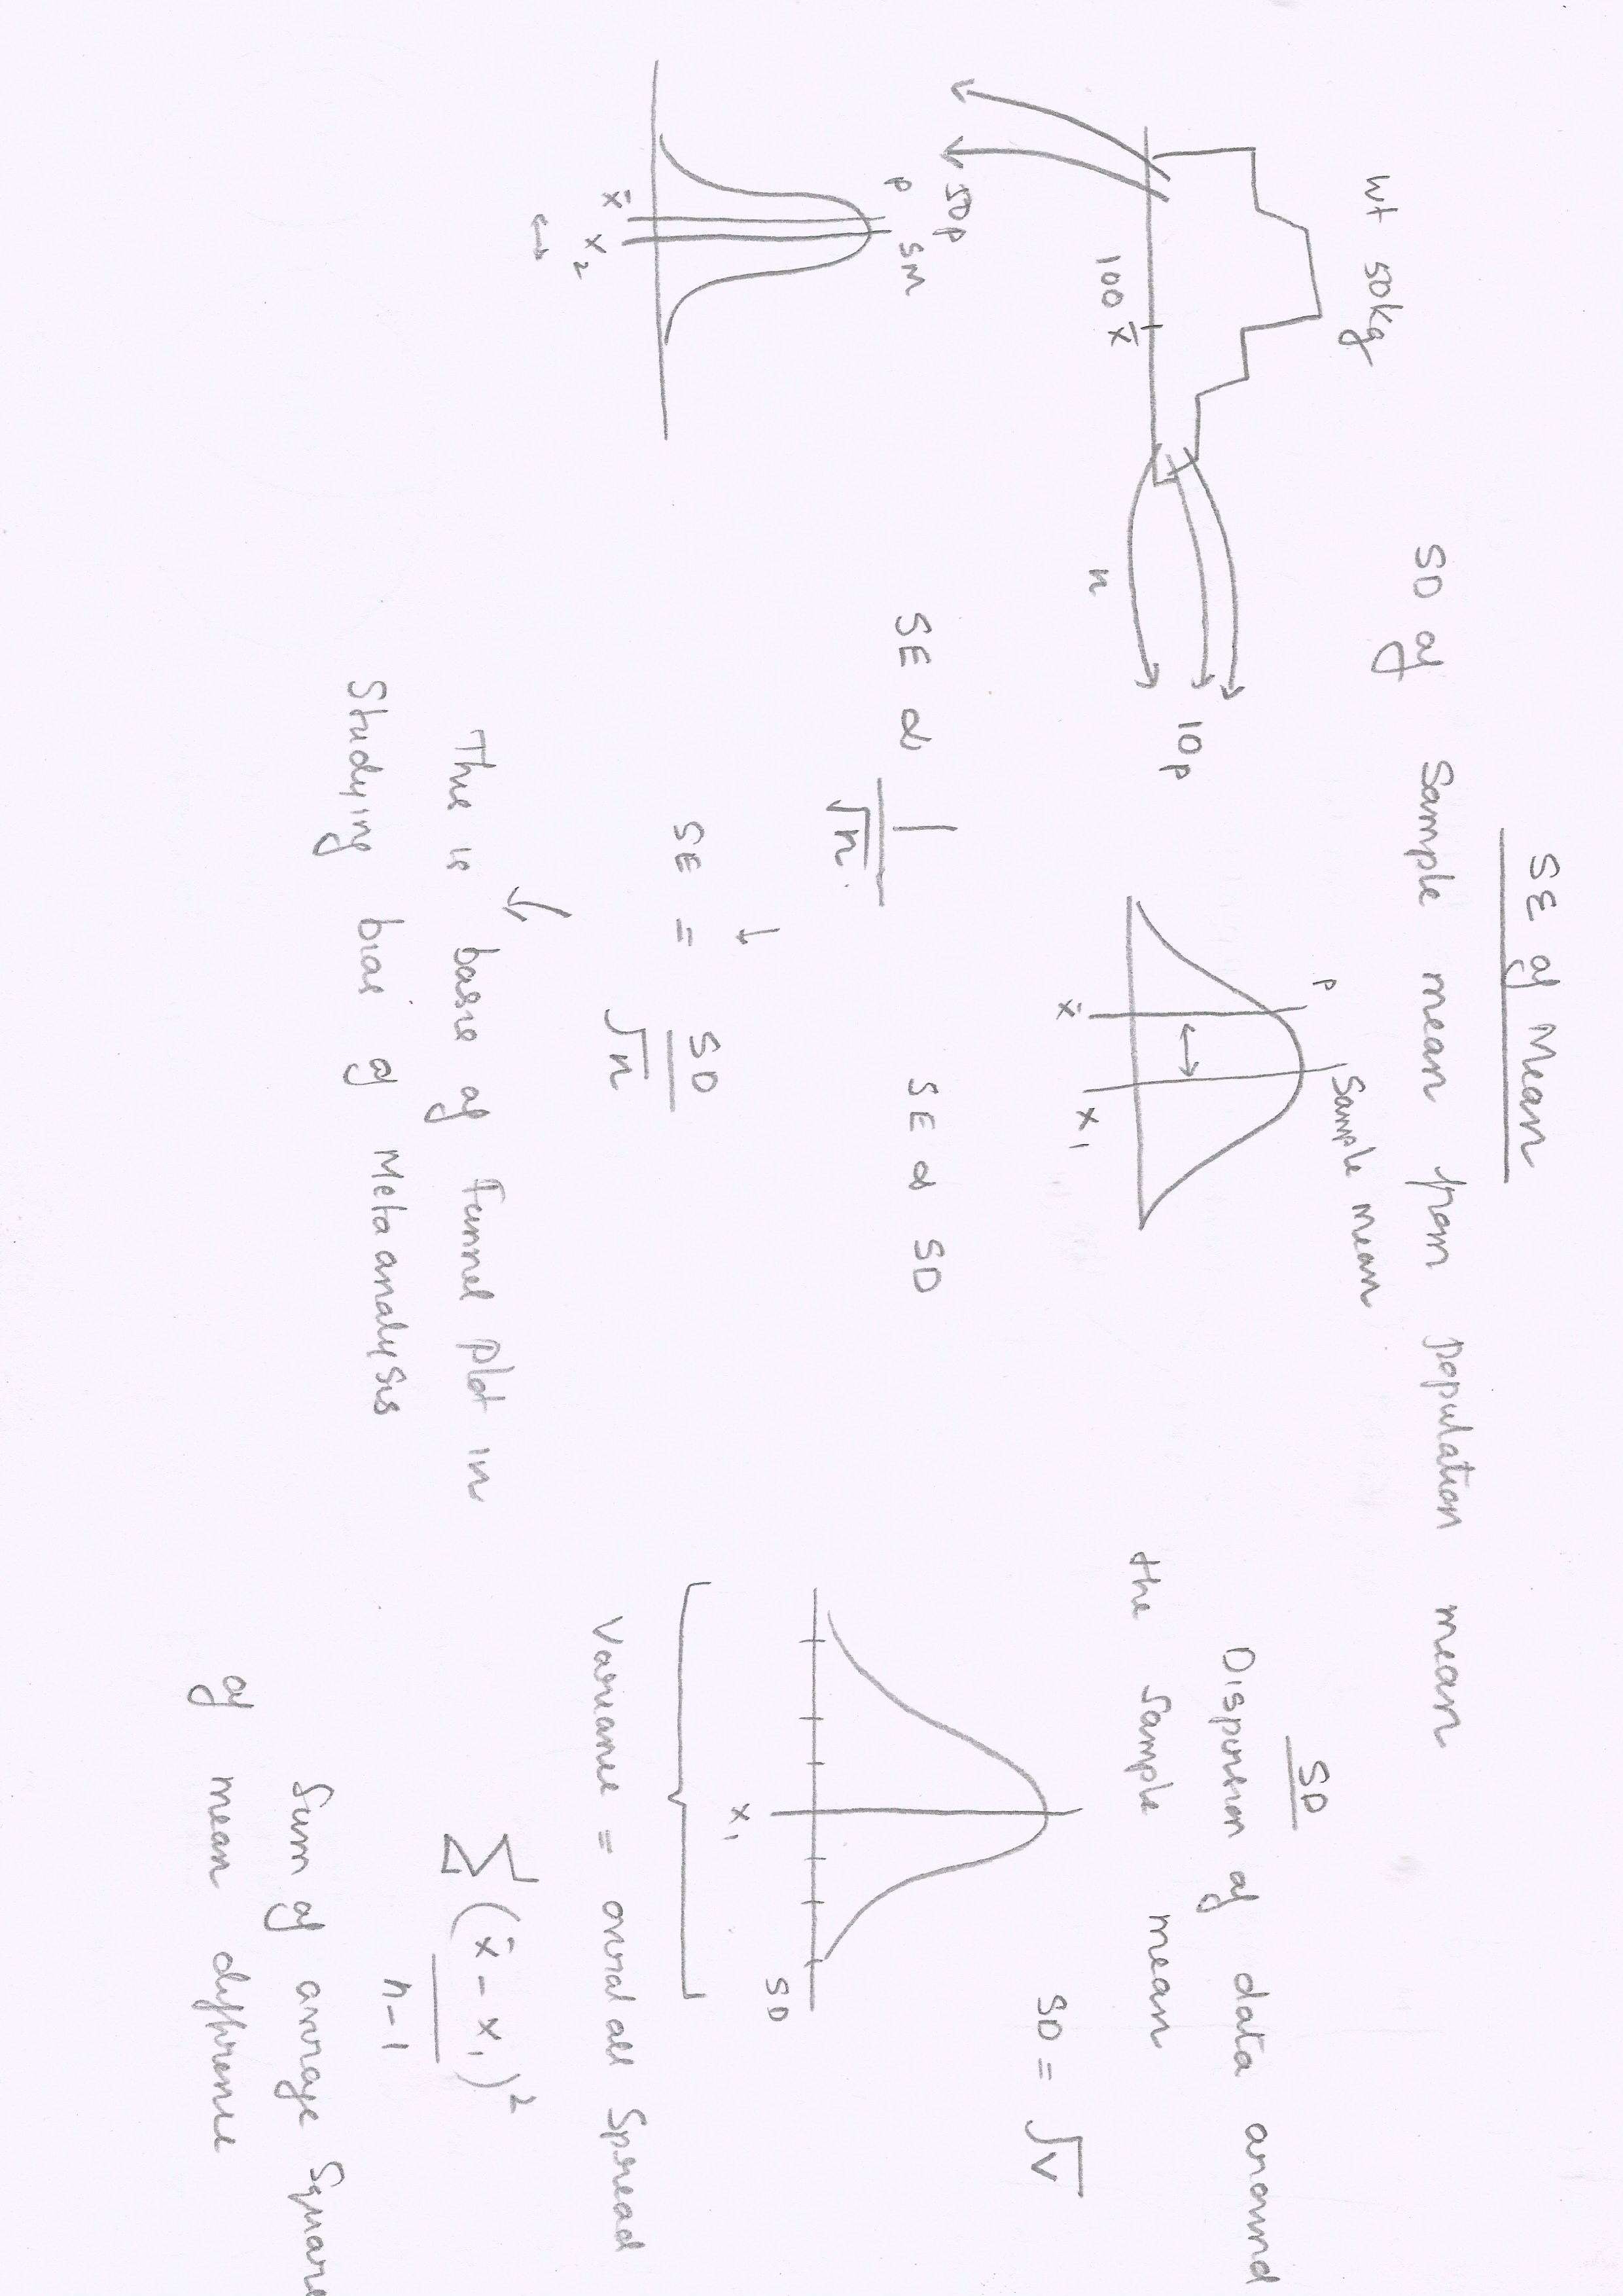 SE of Mean
SD of Sample mean from population mean
Wt 50kg
100 x̄
n
10p
50p
P SM
x̄
x₂
P Sample mean
x̄
x₁
SE ∝ 1/√n
SE ∝ SD
↓
SE = SD/√n
↓
This is basis of Funnel Plot in
Studying bias of Meta analysis
SD
Dispersion of data around
the Sample mean
SD = √V
SD
x₁
Variance = overal all Spread
∑ (x̄ - x₁)²
n-1
Sum of average Square
of mean difference